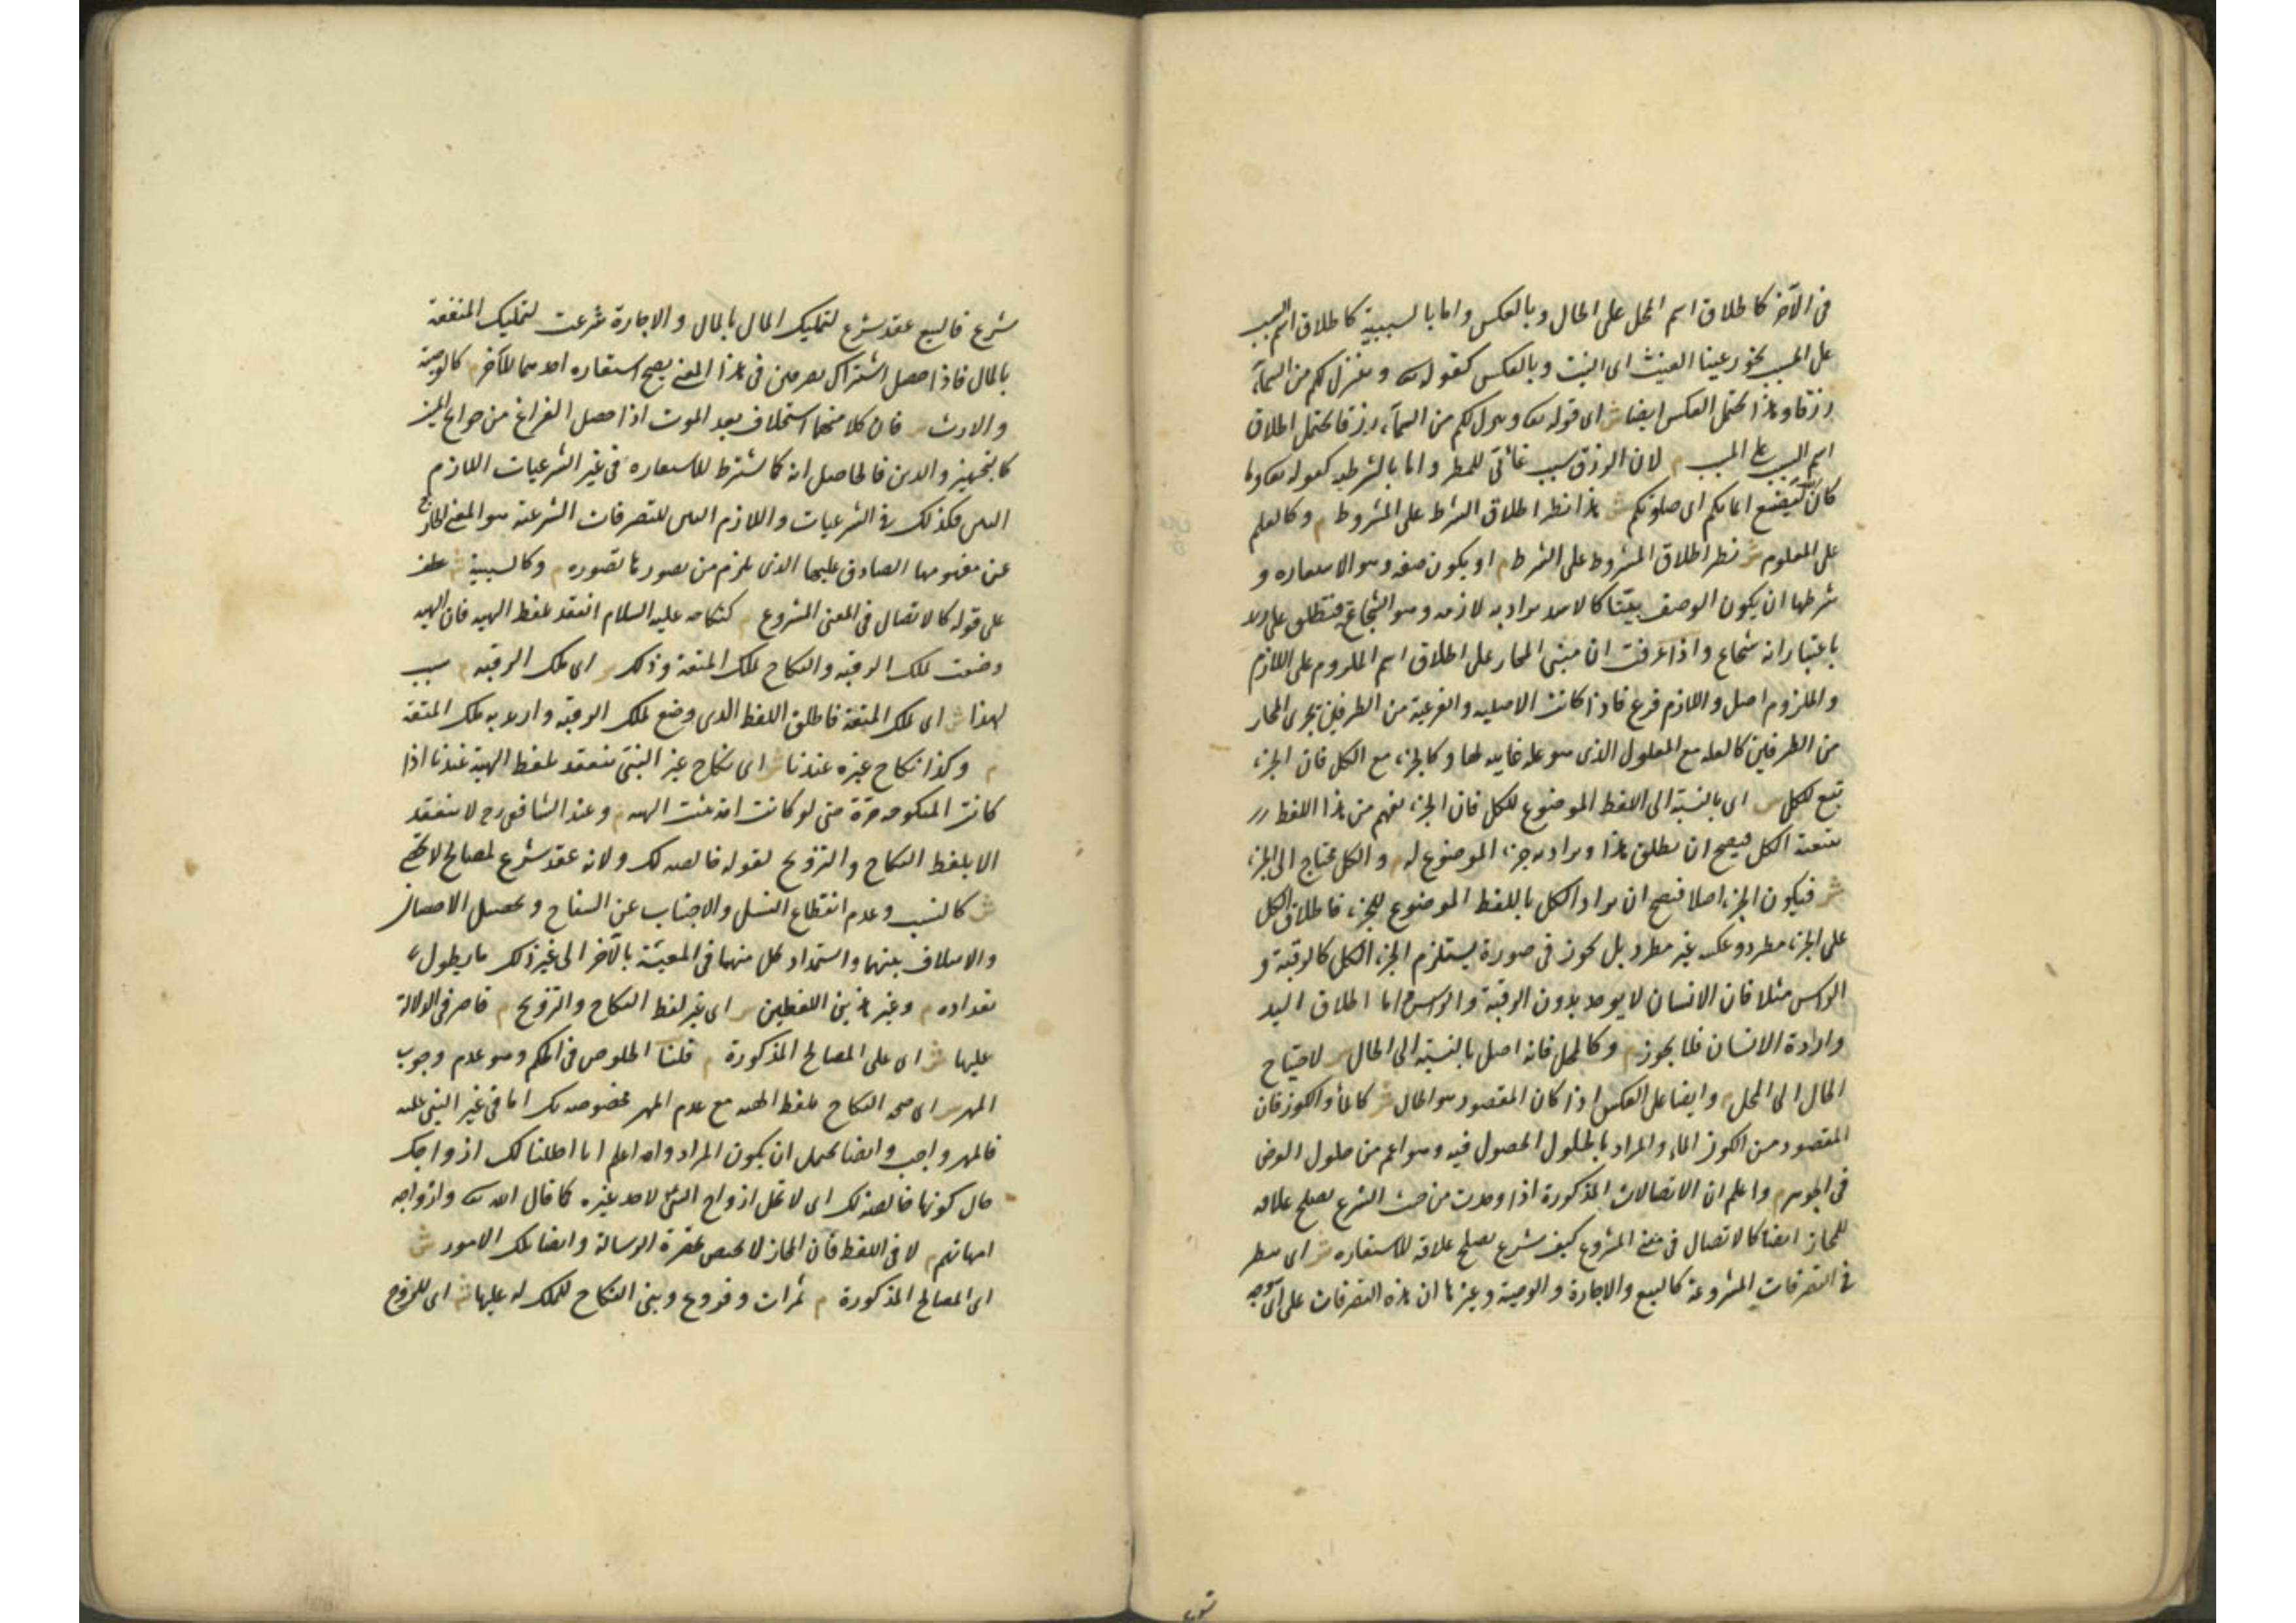 في الآخر كاطلاق اسم المحل على الحال وبالعكس واما بالسببية كاطلاق اسم السبب
على المسبب نحو رعينا الغيث اى النبت وبالعكس كقوله تع وينزل لكم من السمآء
رزقا وهذا يحتمل العكس ايضا ش اى قوله تع وينزل لكم من السمآء رزقا يحتمل اطلاق
اسم السبب على المسبب م لان الرزق سبب غائى للمطر واما بالشرطية كقوله تع وما
كان الله ليضيع ايمانكم اى صلوتكم ش هذا نظير اطلاق الشرط على المشروط م وكالعلم
على المعلوم ش نظير اطلاق المشروط على الشرط م او يكون صفة وهو الاستعارة و
شرطها ان يكون الوصف بيّنا كالاسد يراد به لازمه وهو الشجاع فيطلق على زيد
باعتبار انه شجاع واذا عرفت ان مبنى المجاز على اطلاق اسم الملزوم على اللازم
والملزوم اصل واللازم فرع فاذا كانت الاصلية والفرعية من الطرفين يجرى المجاز
من الطرفين كالعلة مع المعلول الذى هو علة غايية لها وكالجزء مع الكل فان الجزء
تبع للكل ش اى بالنسبة الى اللفظ الموضوع للكل فان الجزء يفهم من هذا اللفظ
بتبعية الكل فيصح ان يطلق هذا ويراد به جزء الموضوع له م والكل محتاج الى الجزء
ش فيكون الجزء اصلا فيصح ان يراد الكل باللفظ الموضوع للجزء فاطلاق الكل
على الجزء مطرد وعكسه غير مطرد بل يجوز في صورة يستلزم الجزء الكل كالرقبة و
الرأس مثلا فان الانسان لا يوجد بدون الرقبة والرأس واما اطلاق اليد
وارادة الانسان فلا يجوز م وكالمحل فانه اصل بالنسبة الى الحال ش لاحتياج
الحال الى المحل م وايضا على العكس اذا كان المقصود هو الحال ش كالماء والكوز فان
المقصود من الكوز الماء والمراد بالحلول الحصول فيه وهو اعم من حلول العرض
في الجوهر م واعلم ان الاتصالات المذكورة اذا وجدت من حيث الشرع يصلح علاقة
للمجاز ايضا كالاتصال في معنى المشروع كيف شرع يصلح علاقة للاستعارة ش اى ينظر
في التصرفات المشروعة كالبيع والاجارة والوصية وغيرها ان هذه التصرفات على اى وجه
شرع فالبيع عقد شرع لتمليك المال بالمال والاجارة شرعت لتمليك المنفعة
بالمال فاذا حصل اشتراك تصرفين في هذا المعنى يصح استعارة احدهما للآخر م كالوصية
والارث ش فان كلا منهما استخلاف بعد الموت اذا حصل الفراغ من حوائج الميت
كالتجهيز والدين فالحاصل انه كما يشترط للاستعارة في غير الشرعيات اللازم
البين فكذلك في الشرعيات واللازم البين للتصرفات الشرعية هو المعنى الخارج
عن مفهومها الصادق عليها الذى يلزم من تصورها تصوره م وكالسببية ش عطف
على قوله كالاتصال في المعنى المشروع م كنكاحه عليه السلام انعقد بلفظ الهبة فان الهبة
وضعت لملك الرقبة والنكاح لملك المتعة وذلك ش اى ملك الرقبة م سبب
لهذا ش اى لملك المتعة فاطلق اللفظ الذى وضع لملك الرقبة واريد به ملك المتعة
م وكذا نكاح غيره عندنا ش اى نكاح غير النبى ينعقد بلفظ الهبة عندنا اذا
كانت المنكوحة حرة حتى لو كانت امة يثبت الهبة م وعند الشافعى رح لا ينعقد
الا بلفظ النكاح والتزويج لقوله خالصة لك ولانه عقد شرع لمصالح لا تحصى
ش كالنسب وعدم انقطاع النسل والاجتناب عن السفاح وتحصيل الاحصان
والايتلاف بينهما واستمداد كل منهما في المعيشة بالآخر الى غير ذلك مما يطول
تعداده م وغير هذين اللفظين ش اى غير لفظ النكاح والتزويج م قاصر في الدلالة
عليها ش اى على المصالح المذكورة م قلنا الخلوص في الحكم وهو عدم وجوب
المهر ش اى صحة النكاح بلفظ الهبة مع عدم المهر مخصوصة بك اما في غير النبى عليه
فالمهر واجب وايضا يحتمل ان يكون المراد والله اعلم انا احللنا لك ازواجك
حال كونها خالصة لك اى لا تحل ازواج النبى لاحد غيره كما قال الله تع وازواجه
امهاتهم م لا في اللفظ فان المجاز لا يختص بحضرة الرسالة وايضا تلك الامور ش
اى المصالح المذكورة م ثمرات وفروع وبنى النكاح للملك له عليها ش اى للزوج